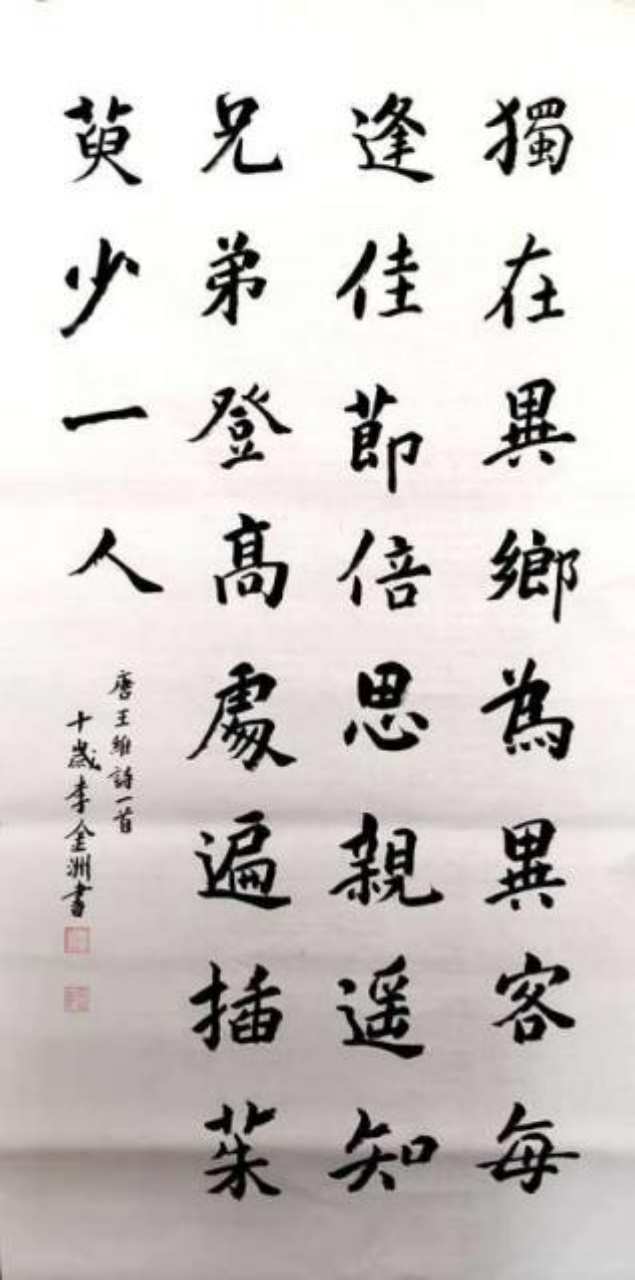 獨在異鄉為異客每
逢佳節倍思親遥知
兄弟登高處遍插茱
萸少一人
唐王維詩一首
十歲李金洲書